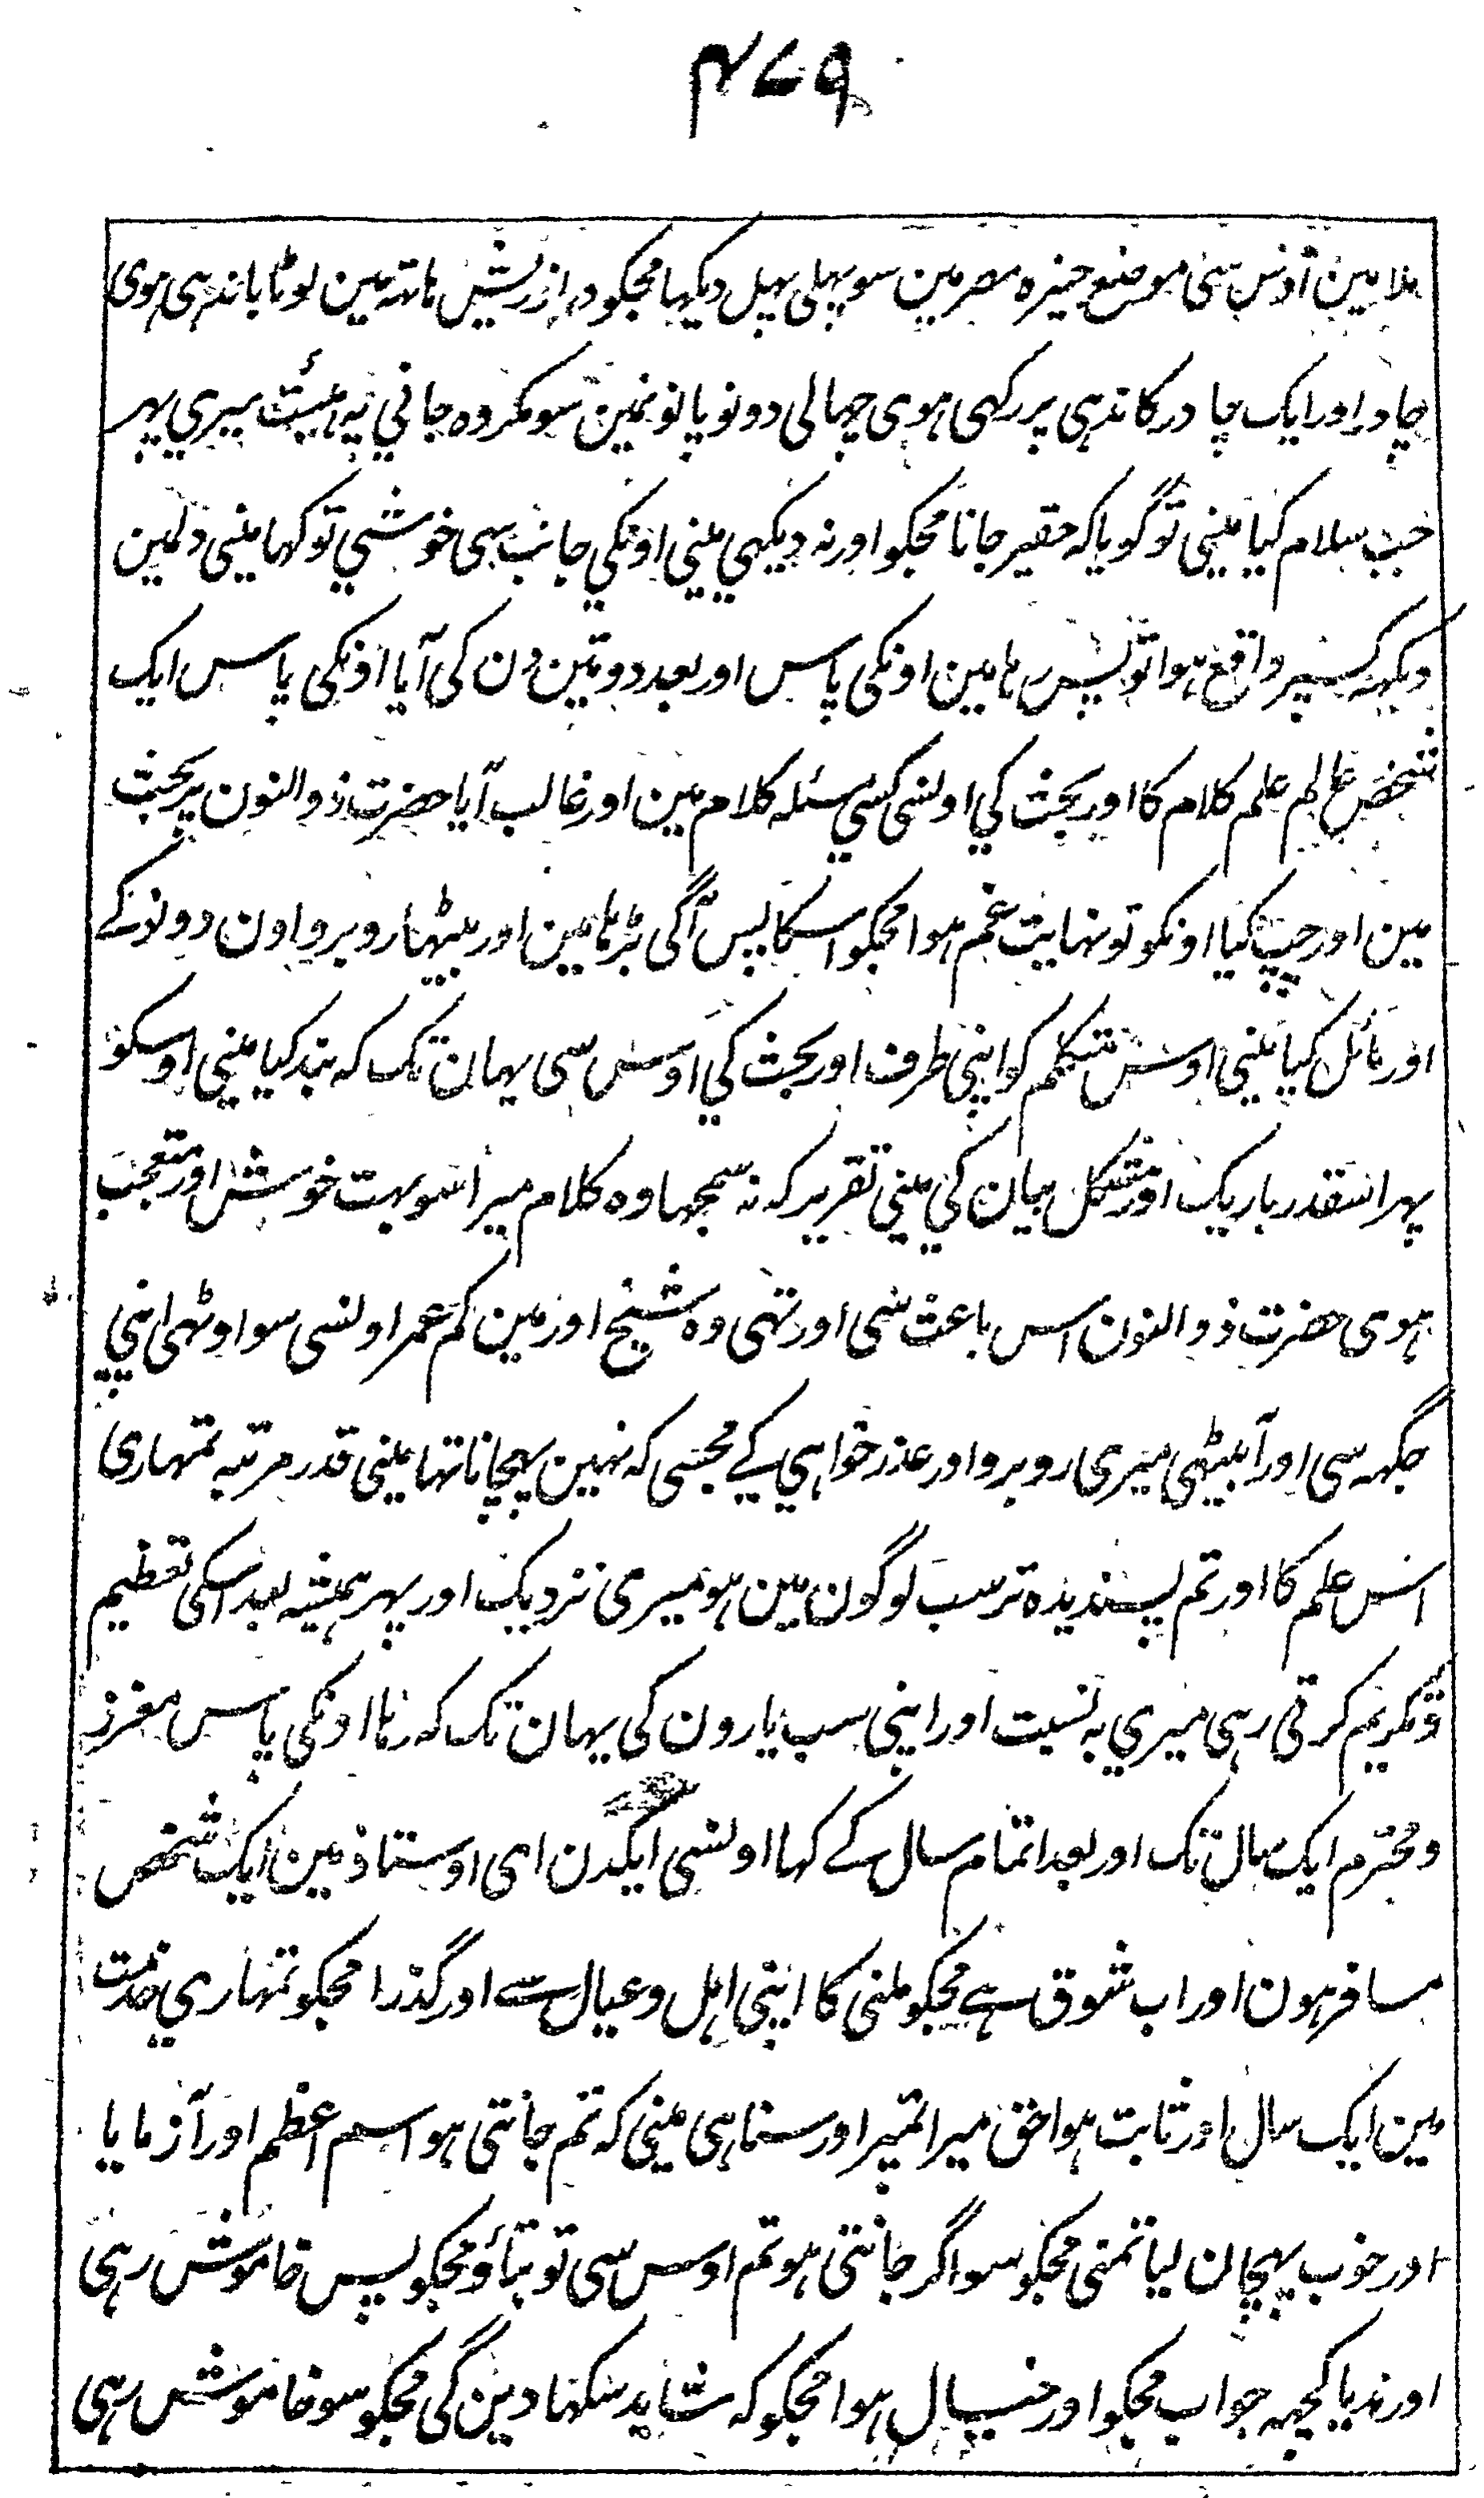 ۴۷۹
ملا مین اونس سی موضع جیزہ مصر مین سو پہلی پہل دیکہا مجکو دراز ریش ہاتہ مین لوٹا باندہی ہوی
چادر اور ایک چادر کاندہی پر رکہی ہوی چہالی دونو پانونمین سو مکروہ جانی یہ ہیئت میری پہر
جب سلام کیا مینی تو گویا کہ حقیر جانا مجکو اور نہ دیکہی مینی اونکی جانب سی خوشی تو کہا مینی دلمین
دیکہہ کسپر واقع ہوا تو پس رہا مین اونکی پاس اور بعد دو تین دن کی آیا اونکی پاس ایک
شخص عالم علم کلام کا اور بحث کی اونسی کسی مسئلہ کلام مین اور غالب آیا حضرت ذوالنون پر بحث
مین اور چپ کیا اونکو تو نہایت غم ہوا مجکو اسکا پس آگی بڑہا مین اور بیٹہا روبرو اون دونو کے
اور مائل کیا مینی اوس متکلم کو اپنی طرف اور بحث کی اوس سی یہان تک کہ بند کیا مینی اوسکو
پہر اسقدر باریک اور مشکل بیان کی مینی تقریر کہ نہ سمجہا وہ کلام میرا سو بہت خوش اور متعجب
ہوی حضرت ذوالنون اس باعث سی اور تہی وہ شیخ اور مین کم عمر اونسی سو اوٹہی اپنی
جگہہ سی اور آبیٹہی میری روبرو اور عذر خواہی کے مجسی کہ نہین پہچانا تہا مینی قدر مرتبہ تمہاری
اس علم کا اور تم پسندیدہ تر سب لوگون مین ہو میری نزدیک اور پہر ہمیشہ بعد اسکی تعظیم
و تکریم کرتی رہی میری بہ نسبت اور اپنی سب یارون کی یہان تک کہ رہا اونکی پاس معزز
و محترم ایک سال تک اور بعد اتمام سال کے کہا اونسی ایکدن ای اوستاذ مین ایک شخص
مسافر ہون اور اب شوق ہے مجکو ملنی کا اپنی اہل و عیال سے اور گذرا مجکو تمہاری خدمت
مین ایک سال اور ثابت ہوا حق میرا تمپر اور سنا ہی مینی کہ تم جانتی ہو اسم اعظم اور آزمایا
اور خوب پہچان لیا تمنی مجکو سو اگر جانتی ہو تم اوس سی تو بتاؤ مجکو پس خاموش رہی
اور ندیا کچہہ جواب مجکو اور خیال ہوا مجکو کہ شاید سکہا دین گی مجکو سو خاموش رہی